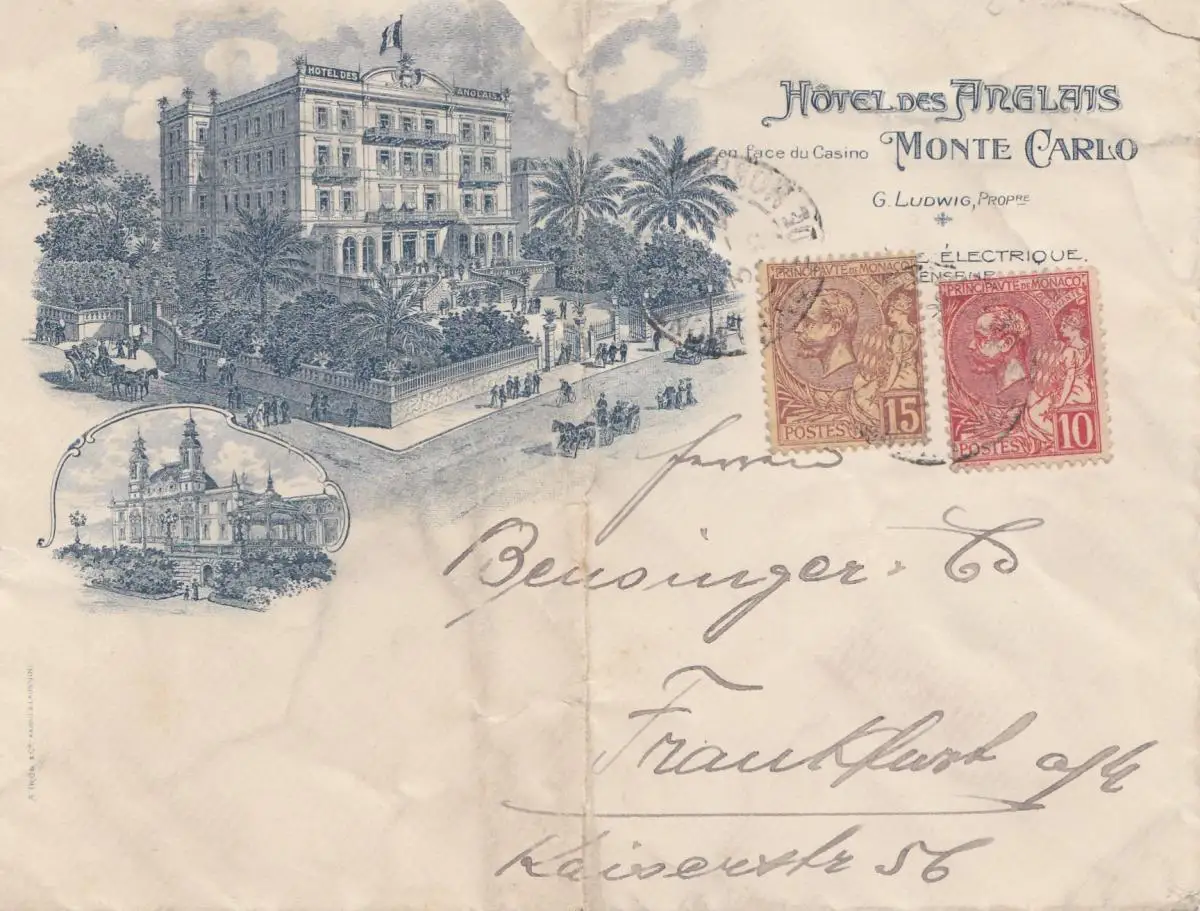 HOTEL DES ANGLAIS
HÔTEL DES ANGLAIS
en face du Casino MONTE CARLO
G. LUDWIG, PROPRE
ÉLECTRIQUE.
PRINCIPAVTE DE MONACO
15
POSTES
PRINCIPAVTE DE MONACO
10
POSTES
Herren
Bensinger & Co
Frankfurt a/M
Kaiserstr 56